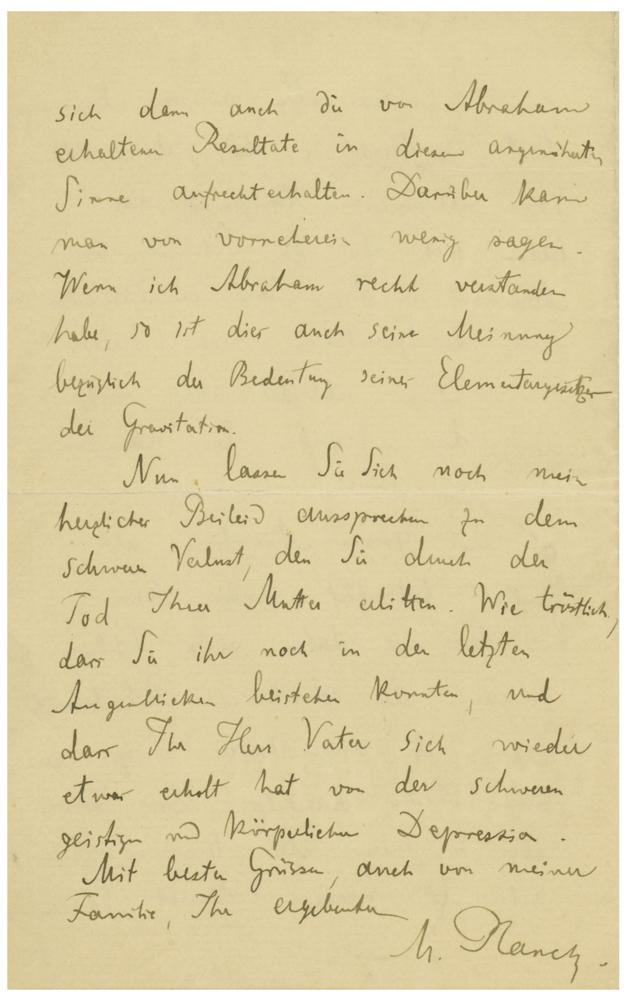 sich dann auch die von Abraham
erhaltenen Resultate in diesem angenäherten
Sinne aufrecht erhalten. Darüber kann
man von vorneherein wenig sagen.
Wenn ich Abraham recht verstanden
habe, so ist dies auch seine Meinung
bezüglich der Bedeutung seiner Elementargesetze
der Gravitation.
Nun lassen Sie Sich noch mein
herzliches Beileid aussprechen zu dem
schweren Verlust, den Sie durch den
Tod Ihrer Mutter erlitten. Wie tröstlich,
dass Sie ihr noch in den letzten
Augenblicken beistehen konnten, und
dass Ihr Herr Vater sich wieder
etwas erholt hat von der schweren
geistigen und körperlichen Depression.
Mit besten Grüssen, auch von meiner
Familie, Ihr ergebenster
M. Planck.